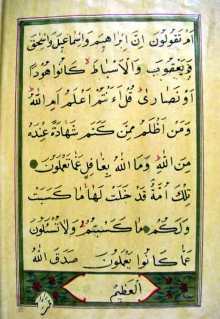 اَمْ تَقُولُونَ اِنَّ اِبْرٰهِيمَ وَاِسْمٰعِيلَ وَاِسْحٰقَ
وَيَعْقُوبَ وَالْاَسْبَاطَ كَانُوا هُودًا
اَوْ نَصَارٰى قُلْ ءَاَنْتُمْ اَعْلَمُ اَمِ اللّٰهُ
وَمَنْ اَظْلَمُ مِمَّنْ كَتَمَ شَهَادَةً عِنْدَهُ
مِنَ اللّٰهِ وَمَا اللّٰهُ بِغَافِلٍ عَمَّا تَعْمَلُونَ
تِلْكَ اُمَّةٌ قَدْ خَلَتْ لَهَا مَا كَسَبَتْ
وَلَكُمْ مَا كَسَبْتُمْ وَلَا تُسْئَلُونَ
عَمَّا كَانُوا يَعْمَلُونَ صَدَقَ اللّٰهُ
الْعَظِيمُ